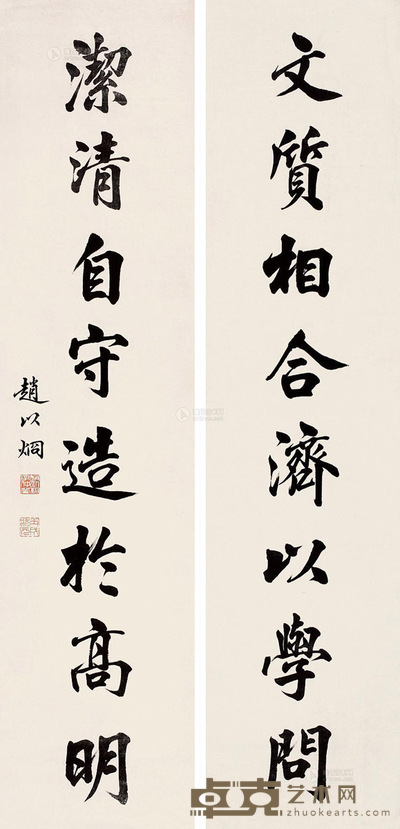 文質相合濟以學問
潔清自守造於高明
趙以烱
卓克艺术网
zhuokearts.com